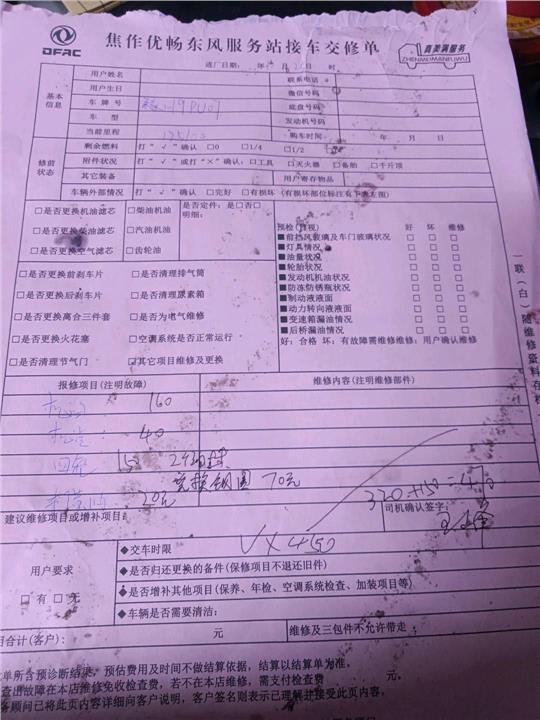 DFAC
焦作优畅东风服务站接车交修单
真美满服务
ZHENMEIMANFUWU
进厂日期: 年 月 日 时
基本信息
用户姓名 联系电话
用户生日 微信号码
车牌号 底盘号码
车型 发动机号码
当前里程 购车时间: 年 月 日
修前状态
剩余燃料 打“√”确认 □0 □1/4 □1/2
附件状况 打“√”或打“×”确认:□工具 □灭火器 □备胎 □千斤顶
其它装备 用户寄存物品
车辆外部情况 打“√”确认 □完好 □有损坏(有损坏部位标注有下表左图)
□是否更换机油滤芯 □柴油机油 是否定件:是□否□
□是否更换柴油滤芯 □汽油机油 明细:
□是否更换空气滤芯 □齿轮油
□是否更换前刹车片 □是否清理排气筒
□是否更换后刹车片 □是否清理尿素箱
□是否更换离合三件套 □是否为电气维修
□是否更换火花塞 □空调系统是否正常运行
□是否清理节气门 □其它项目维修及更换
预检(目视) 好 坏 维修
■前挡风玻璃及车门玻璃状况 □ □ □
■灯具情况 □ □ □
■油量状况 □ □ □
■轮胎状况 □ □ □
■发动机机油状况 □ □ □
■防冻防锈瓶状况 □ □ □
■制动液液面 □ □ □
■动力转向液液面 □ □ □
■变速箱漏油情况 □ □ □
■后桥漏油情况 □ □ □
好:合格 坏:有故障需维修维修:用户确认维修
一联(白)随维修
报修项目(注明故障) 维修内容(注明维修部件)
160
40
150
70元
20元
320+150=470
建议维修项目或增补项目: 司机确认签字:
用户要求
□有 □无
◆交车时限
VX450
◆是否归还更换的备件(保修项目不退还旧件)
◆是否增补其他项目(保养、年检、空调系统检查、加装项目等)
◆车辆是否需要清洁:
用合计(客户): 元 维修及三包件不允许带走
单所含预诊断结果,预估费用及时间不做结算依据,结算以结算单为准,
查出故障在本店维修免收检查费,若不在本店维修,需支付检查费 元,
务顾问已将此页内容详细向客户说明,客户签名则表示已理解并接受此页内容,